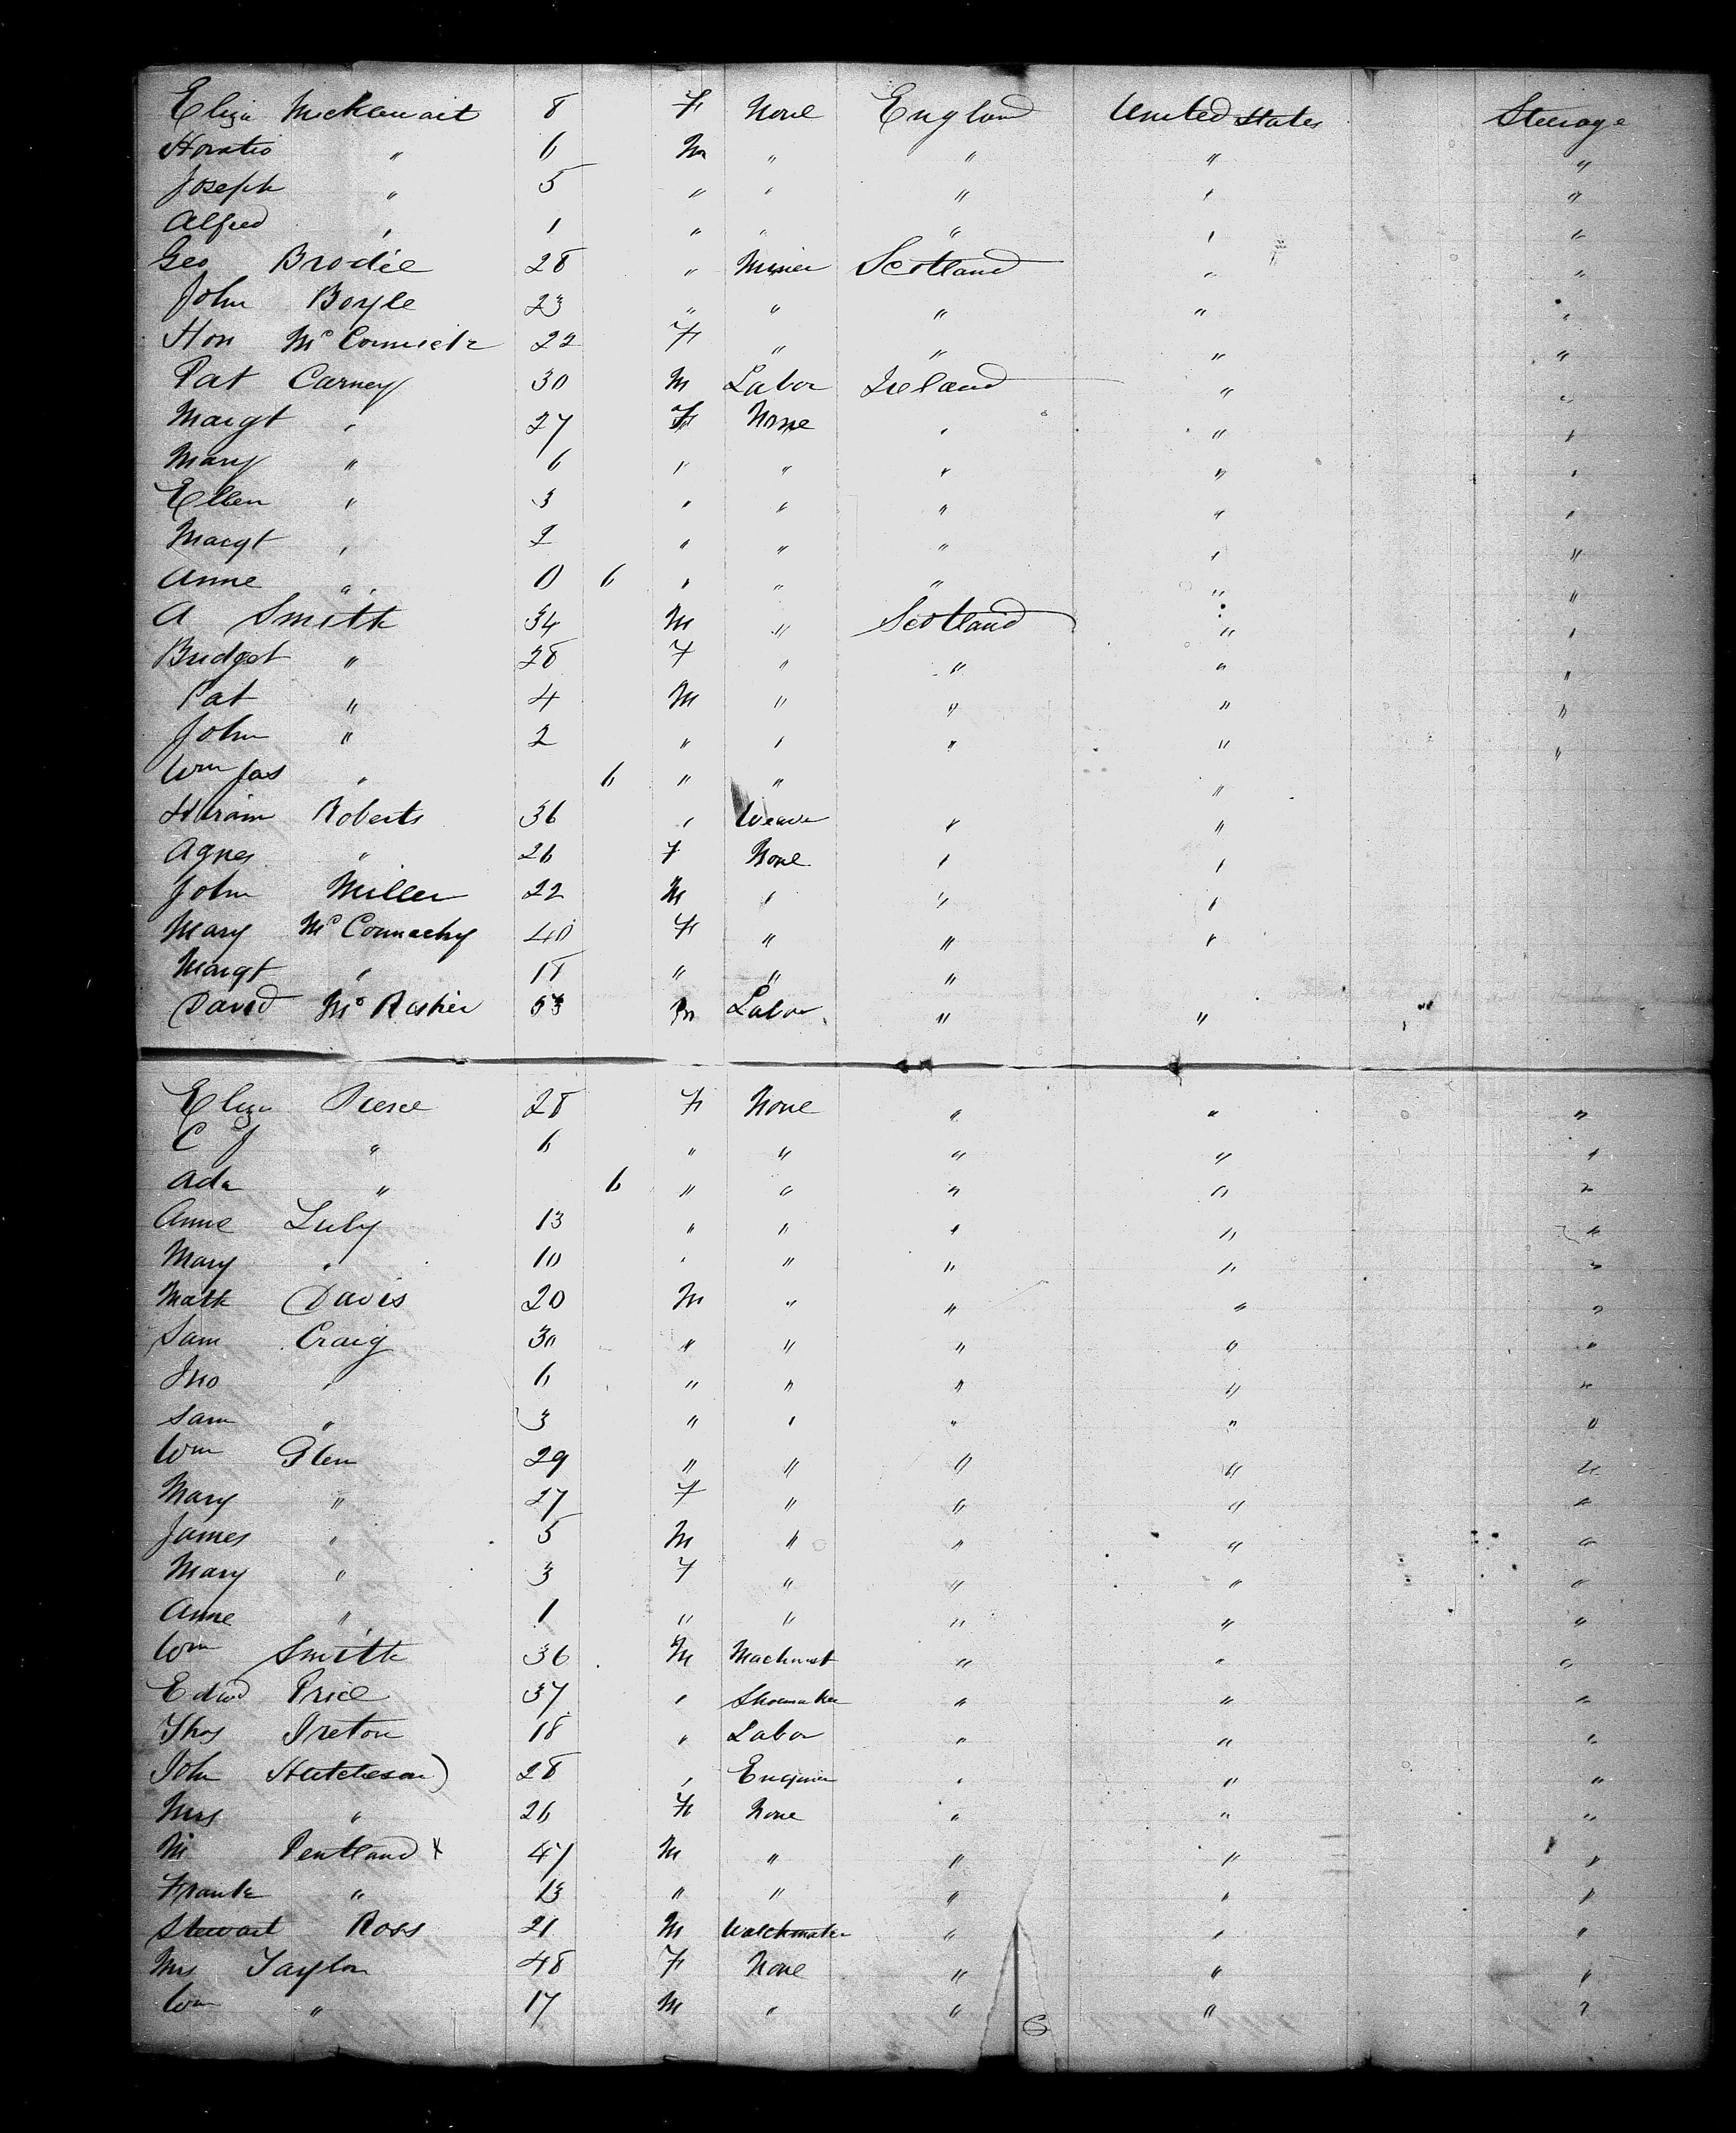 Eliza 8 F None England United States Steerage
Horatio " 6 M " " " "
Joseph " 5 " " " " "
Alfred " 1 " " " " "
Geo Brodie 28 " Miner Scotland " "
John Boyle 23 " " " " "
Hon McCormick 22 F " " " "
Pat Carney 30 M Labor Ireland " "
Margt " 27 F None " " "
Mary " 6 " " " " "
Ellen " 3 " " " " "
Margt " 2 " " " " "
Anne " 0 6 " " " " "
A Smith 34 M " Scotland " "
Bridget " 28 F " " " "
Pat " 4 M " " " "
John " 2 " " " " "
Wm Jas " 6 " " "
Hiram Roberts 36 " Weaver " "
Agnes " 26 F None " "
John Miller 22 M " " "
Mary McConnachy 40 F " " "
Margt " 18 " " "
David 53 M Labor " "
Eliza Pierce 28 F None " " "
C J " 6 " " " " "
Ada " 6 " " " " "
Anne Luby 13 " " " " "
Mary " 10 " " " " "
Mark Davis 20 M " " " "
Sam Craig 30 " " " " "
Jno " 6 " " " " "
Sam " 3 " " " " "
Wm Glen 29 " " " " "
Mary " 27 F " " " "
James " 5 M " " " "
Mary " 3 F " " " "
Anne " 1 " " " " "
Wm Smith 36 M Machinist " " "
Edwd Price 37 " Shoemaker " " "
Thos Ireton 18 " Labor " " "
John Hutcheson 28 " Engineer " " "
Mrs " 26 F None " " "
M Pentland x 47 M " " " "
Frank " 13 " " " " "
Stewart Ross 21 M Watchmaker " " "
Mrs Taylor 48 F None " " "
Wm " 17 M " " " "
6